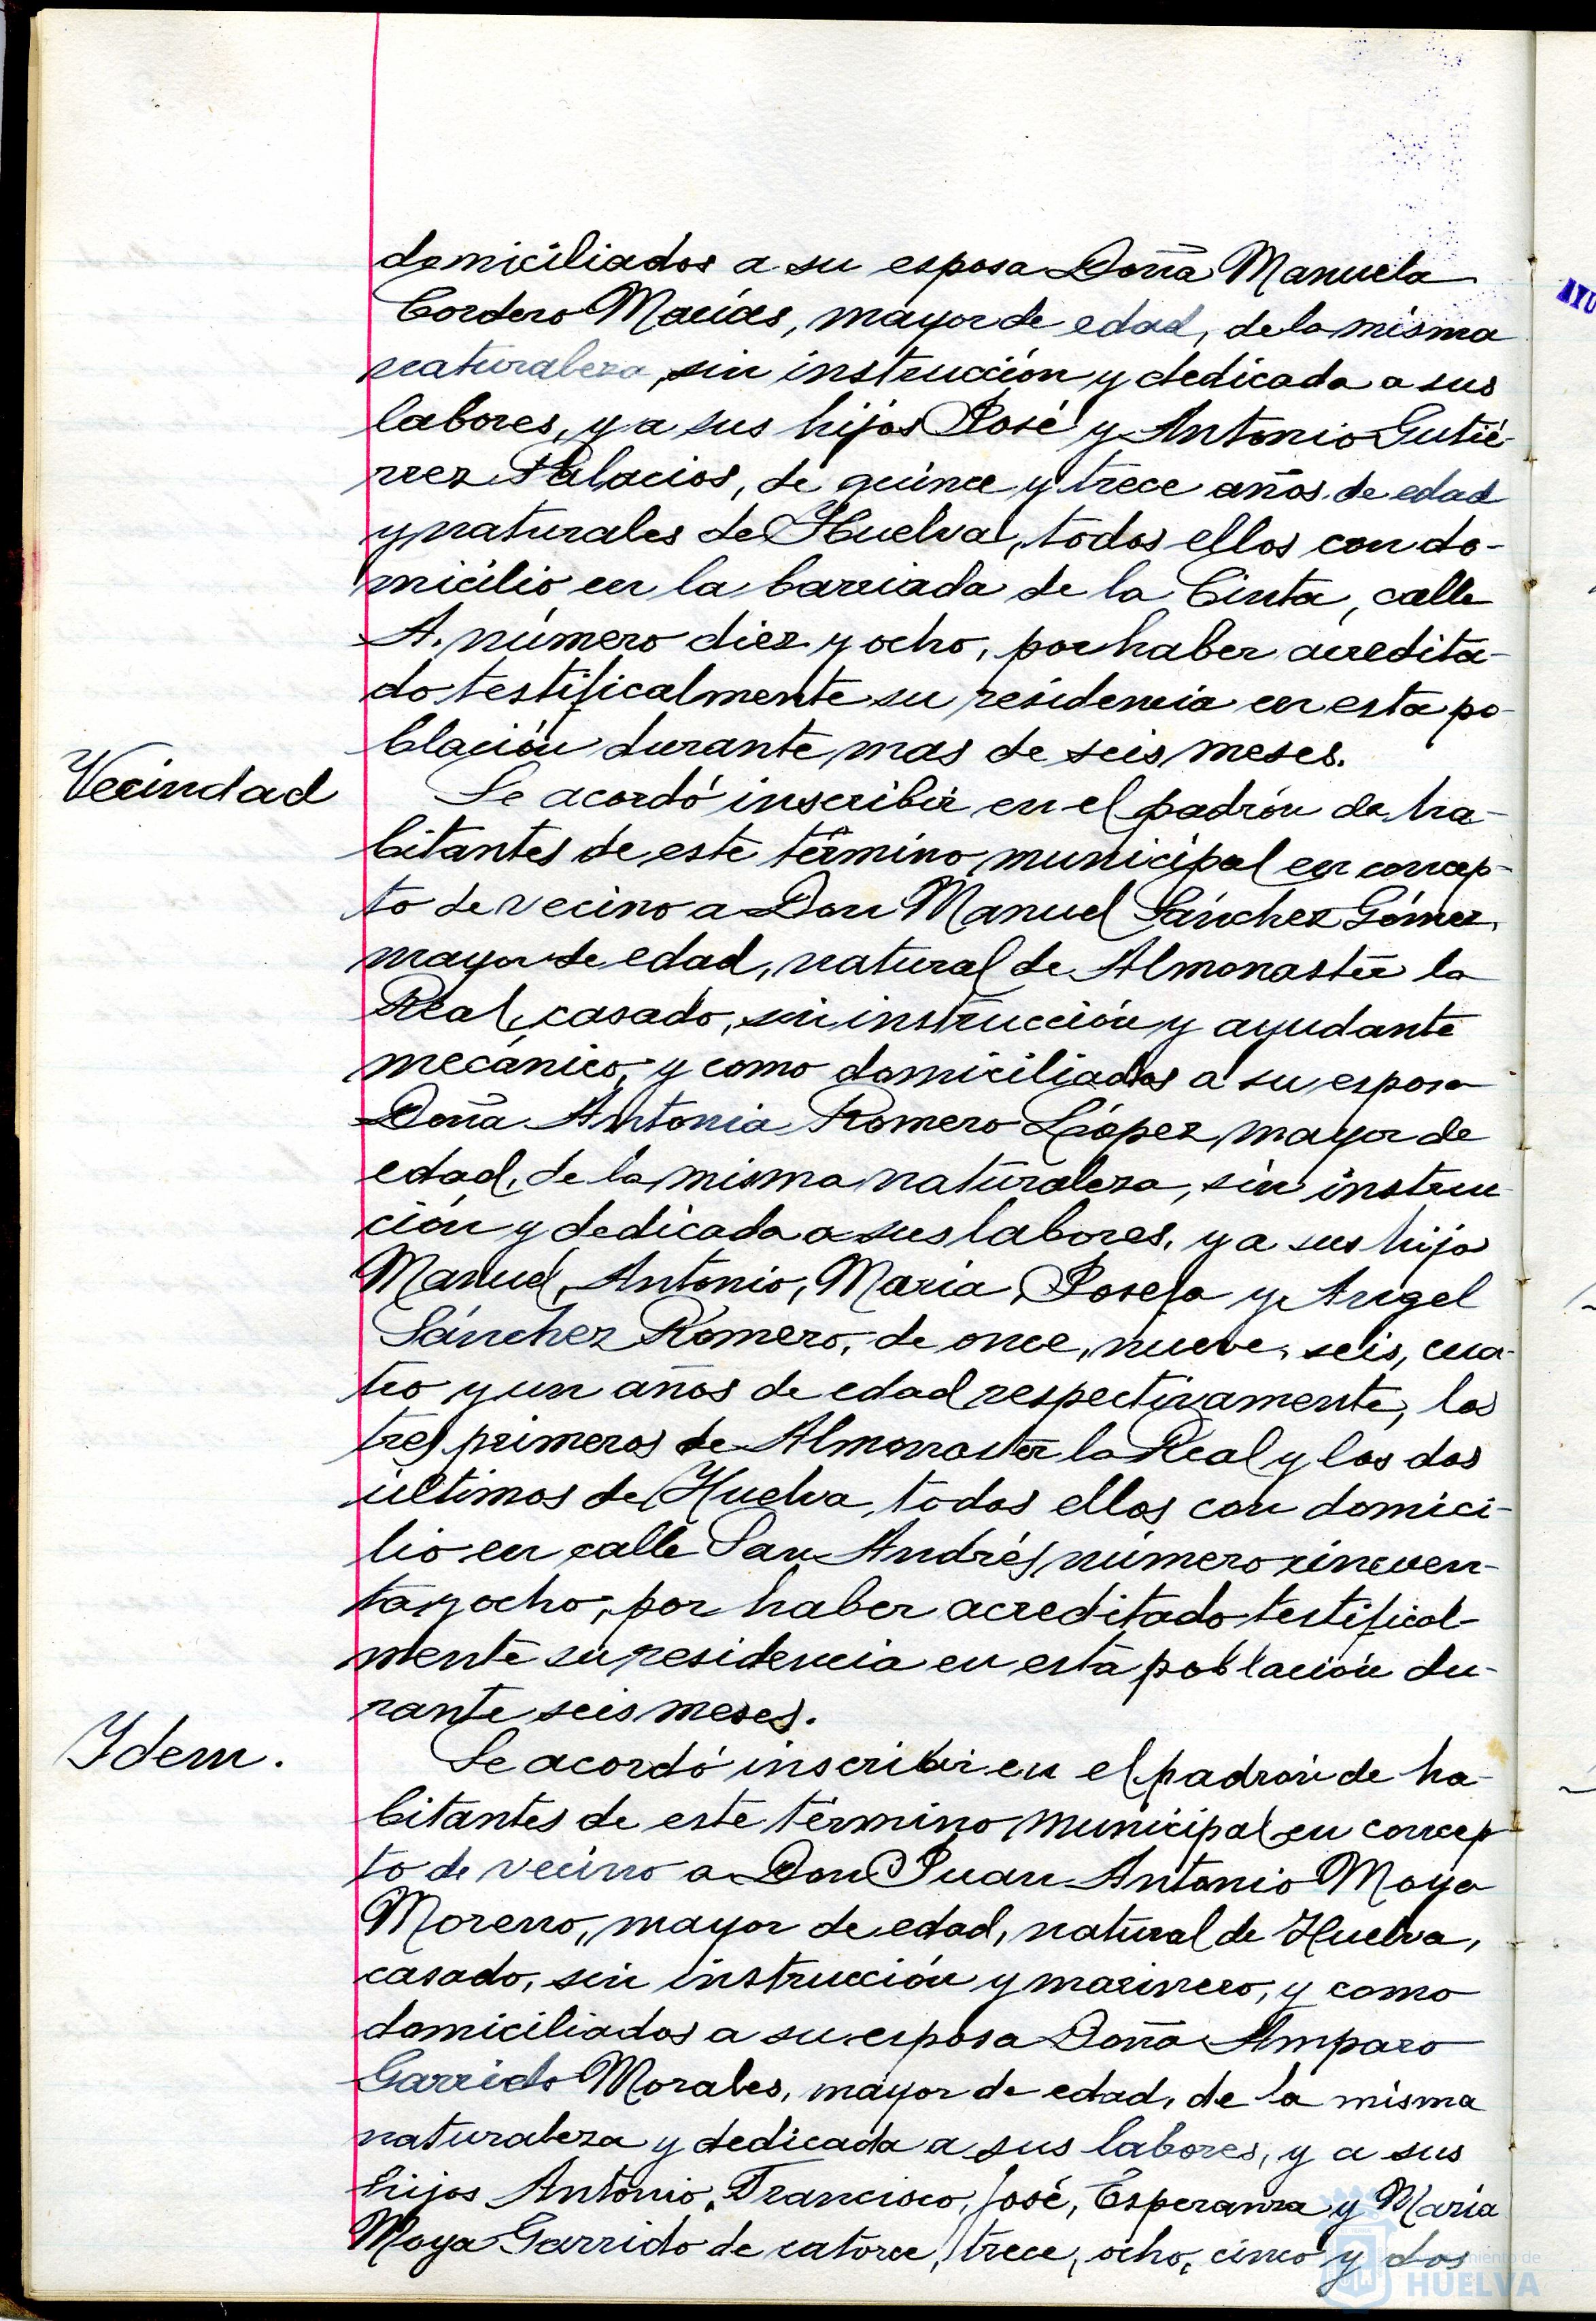 domiciliados a su esposa Doña Manuela
Cordero Macías, mayor de edad, de la misma
naturaleza, sin instrucción y dedicada a sus
labores, y a sus hijos José y Antonio Gutié-
rrez Palacios, de quince y trece años de edad
y naturales de Huelva, todos ellos con do-
micilio en la barriada de la Cinta, calle
A. número diez y ocho, por haber acredita-
do testificalmente su residencia en esta po-
blación durante mas de seis meses.
Vecindad
Se acordó inscribir en el padrón de ha-
bitantes de este término municipal en concep-
to de vecino a Don Manuel Sánchez Gómez,
mayor de edad, natural de Almonaster la
Real, casado, sin instrucción y ayudante
mecánico, y como domiciliados a su esposa
Doña Antonia Romero López, mayor de
edad, de la misma naturaleza, sin instru-
ción y dedicada a sus labores, y a sus hijos
Manuel, Antonio, María, Josefa y Angel
Sánchez Romero, de once, nueve, seis, cua-
tro y un años de edad respectivamente, los
tres primeros de Almonaster la Real y los dos
últimos de Huelva, todos ellos con domici-
lio en calle San Andrés número cincuen-
ta y ocho, por haber acreditado testifical-
mente su residencia en esta población du-
rante seis meses.
Idem.
Se acordó inscribir en el padrón de ha-
bitantes de este término municipal en concep
to de vecino a Don Juan Antonio Moya
Moreno, mayor de edad, natural de Huelva,
casado, sin instrucción y marinero, y como
domiciliados a su esposa Doña Amparo
Garrido Morales, mayor de edad, de la misma
naturaleza y dedicada a sus labores, y a sus
hijos Antonio, Francisco, José, Esperanza y María
Moya Garrido de catorce, trece, ocho, cinco y dos
HUELVA
AYU